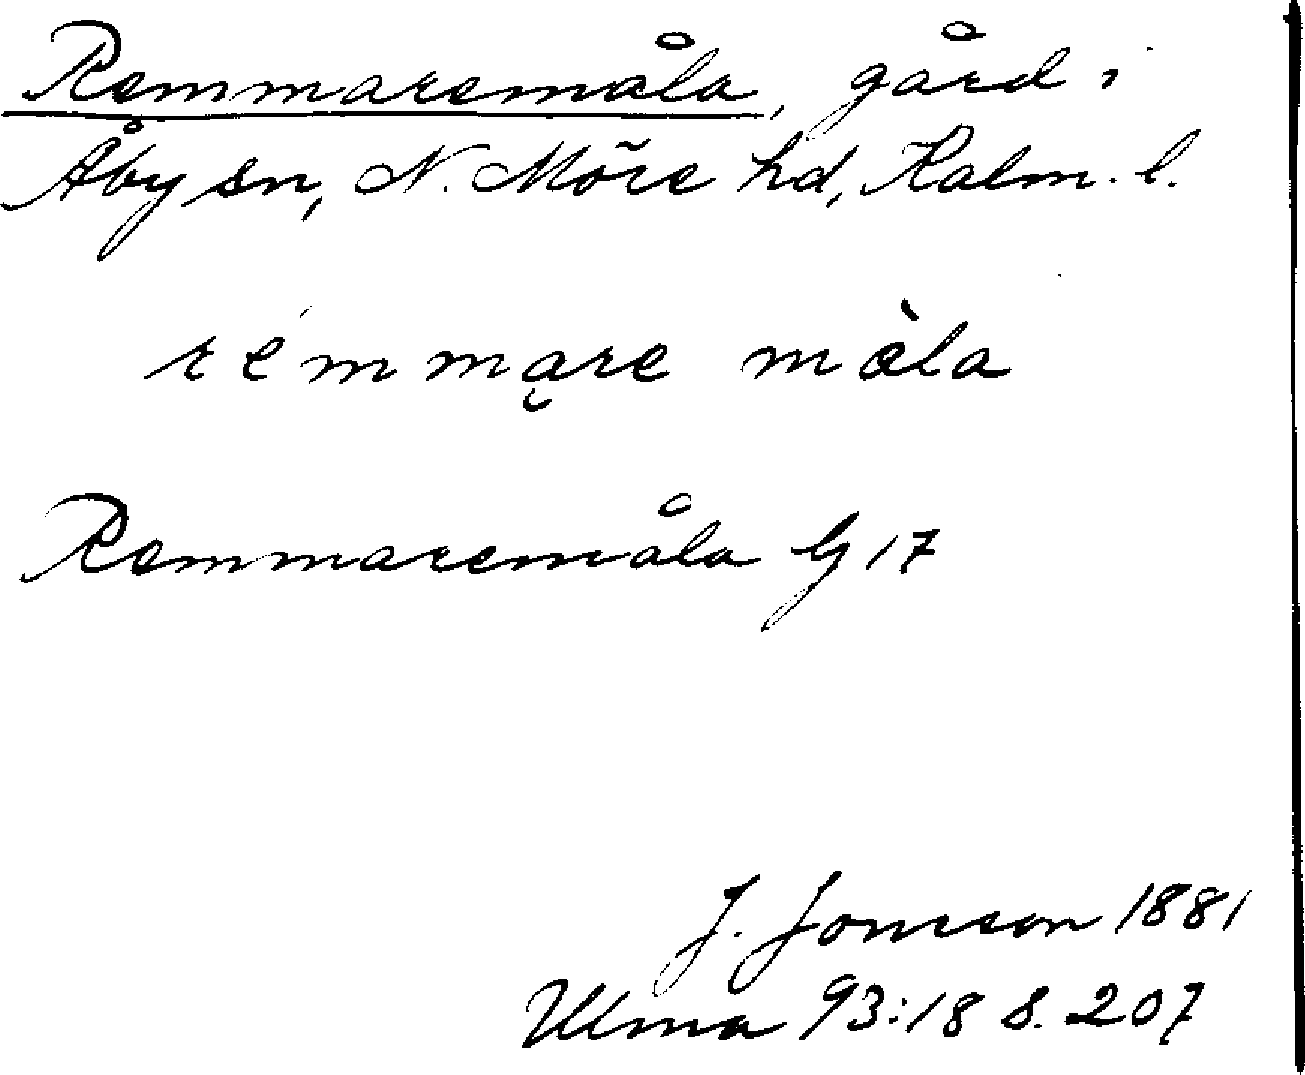 Remmaremåla, gård i
Åby sn, N. Möre hd, Kalm. l.
rémmąre mòla
Remmaremåla G 17
J. Jonsson 1881
Ulma 93:18 s. 207